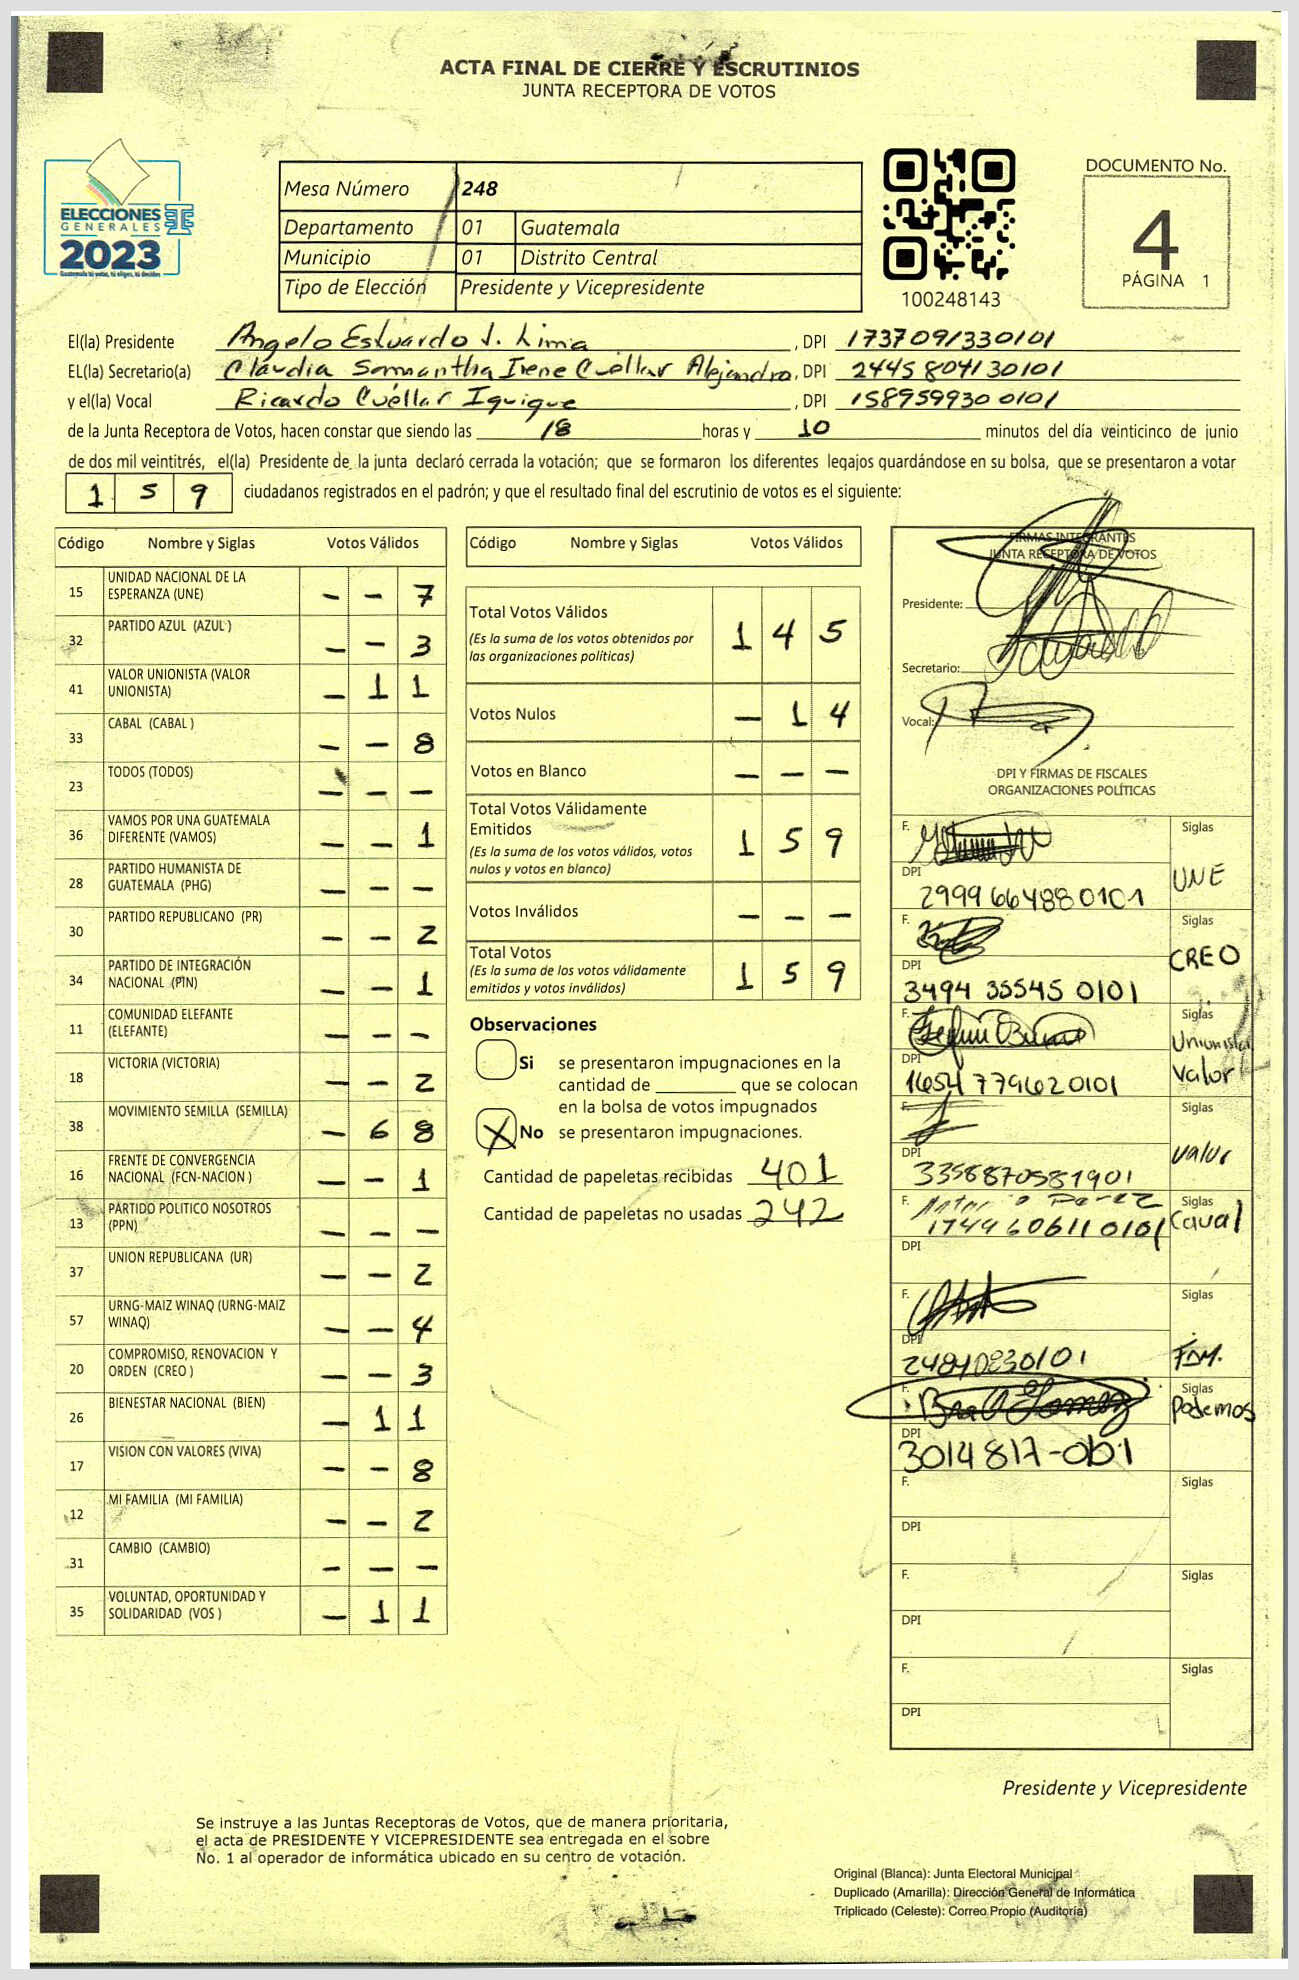 ACTA FINAL DE CIERRE Y ESCRUTINIOS
JUNTA RECEPTORA DE VOTOS
ELECCIONES
GENERALES
2023
Guatemala tú votas, tú eliges, tú decides
Mesa Número 248
Departamento 01 Guatemala
Municipio 01 Distrito Central
Tipo de Elección Presidente y Vicepresidente
100248143
DOCUMENTO No.
4
PÁGINA 1
El(la) Presidente Angelo Estuardo J. Lima, DPI 1737091330101
EL(la) Secretario(a) Claudia Samantha Irene Cuéllar Alejandro, DPI 2445804130101
y el(la) Vocal Ricardo Cuéllar Iquique, DPI 1589599300101
de la Junta Receptora de Votos, hacen constar que siendo las 18 horas y 10 minutos del día veinticinco de junio
de dos mil veintitrés, el(la) Presidente de la junta declaró cerrada la votación; que se formaron los diferentes legajos guardándose en su bolsa, que se presentaron a votar
1 5 9 ciudadanos registrados en el padrón; y que el resultado final del escrutinio de votos es el siguiente:
Código Nombre y Siglas Votos Válidos
15 UNIDAD NACIONAL DE LA ESPERANZA (UNE) - - 7
32 PARTIDO AZUL (AZUL ) - - 3
41 VALOR UNIONISTA (VALOR UNIONISTA) - 1 1
33 CABAL (CABAL ) - - 8
23 TODOS (TODOS) - - -
36 VAMOS POR UNA GUATEMALA DIFERENTE (VAMOS) - - 1
28 PARTIDO HUMANISTA DE GUATEMALA (PHG) - - -
30 PARTIDO REPUBLICANO (PR) - - 2
34 PARTIDO DE INTEGRACIÓN NACIONAL (PIN) - - 1
11 COMUNIDAD ELEFANTE (ELEFANTE) - - -
18 VICTORIA (VICTORIA) - - 2
38 MOVIMIENTO SEMILLA (SEMILLA) - 6 8
16 FRENTE DE CONVERGENCIA NACIONAL (FCN-NACION ) - - 1
13 PARTIDO POLITICO NOSOTROS (PPN) - - -
37 UNION REPUBLICANA (UR) - - 2
57 URNG-MAIZ WINAQ (URNG-MAIZ WINAQ) - - 4
20 COMPROMISO, RENOVACION Y ORDEN (CREO ) - - 3
26 BIENESTAR NACIONAL (BIEN) - 1 1
17 VISION CON VALORES (VIVA) - - 8
12 MI FAMILIA (MI FAMILIA) - - 2
31 CAMBIO (CAMBIO) - - -
35 VOLUNTAD, OPORTUNIDAD Y SOLIDARIDAD (VOS ) - 1 1
Código Nombre y Siglas Votos Válidos
Total Votos Válidos 1 4 5
(Es la suma de los votos obtenidos por
las organizaciones políticas)
Votos Nulos - 1 4
Votos en Blanco - - -
Total Votos Válidamente
Emitidos 1 5 9
(Es la suma de los votos válidos, votos
nulos y votos en blanco)
Votos Inválidos - - -
Total Votos 1 5 9
(Es la suma de los votos válidamente
emitidos y votos inválidos)
Observaciones
Si se presentaron impugnaciones en la
cantidad de ________ que se colocan
en la bolsa de votos impugnados
X No se presentaron impugnaciones.
Cantidad de papeletas recibidas 401
Cantidad de papeletas no usadas 242
FIRMAS INTEGRANTES
JUNTA RECEPTORA DE VOTOS
Presidente:
Secretario:
Vocal:
DPI Y FIRMAS DE FISCALES
ORGANIZACIONES POLÍTICAS
F. Siglas
DPI 2999664880101 UNE
F. Siglas
DPI 3494 35545 0101 CREO
F. Siglas
DPI 1654779620101 Unionista Valor
F. Siglas
DPI 3358870581901 valor
F. Siglas
1744606110101 Caval
DPI
F. Siglas
DPI 24840230101
F. Siglas
DPI 3014817-0101 Podemos
F. Siglas
DPI
F. Siglas
DPI
F. Siglas
DPI
Presidente y Vicepresidente
Se instruye a las Juntas Receptoras de Votos, que de manera prioritaria,
el acta de PRESIDENTE Y VICEPRESIDENTE sea entregada en el sobre
No. 1 al operador de informática ubicado en su centro de votación.
Original (Blanca): Junta Electoral Municipal
Duplicado (Amarilla): Dirección General de Informática
Triplicado (Celeste): Correo Propio (Auditoría)